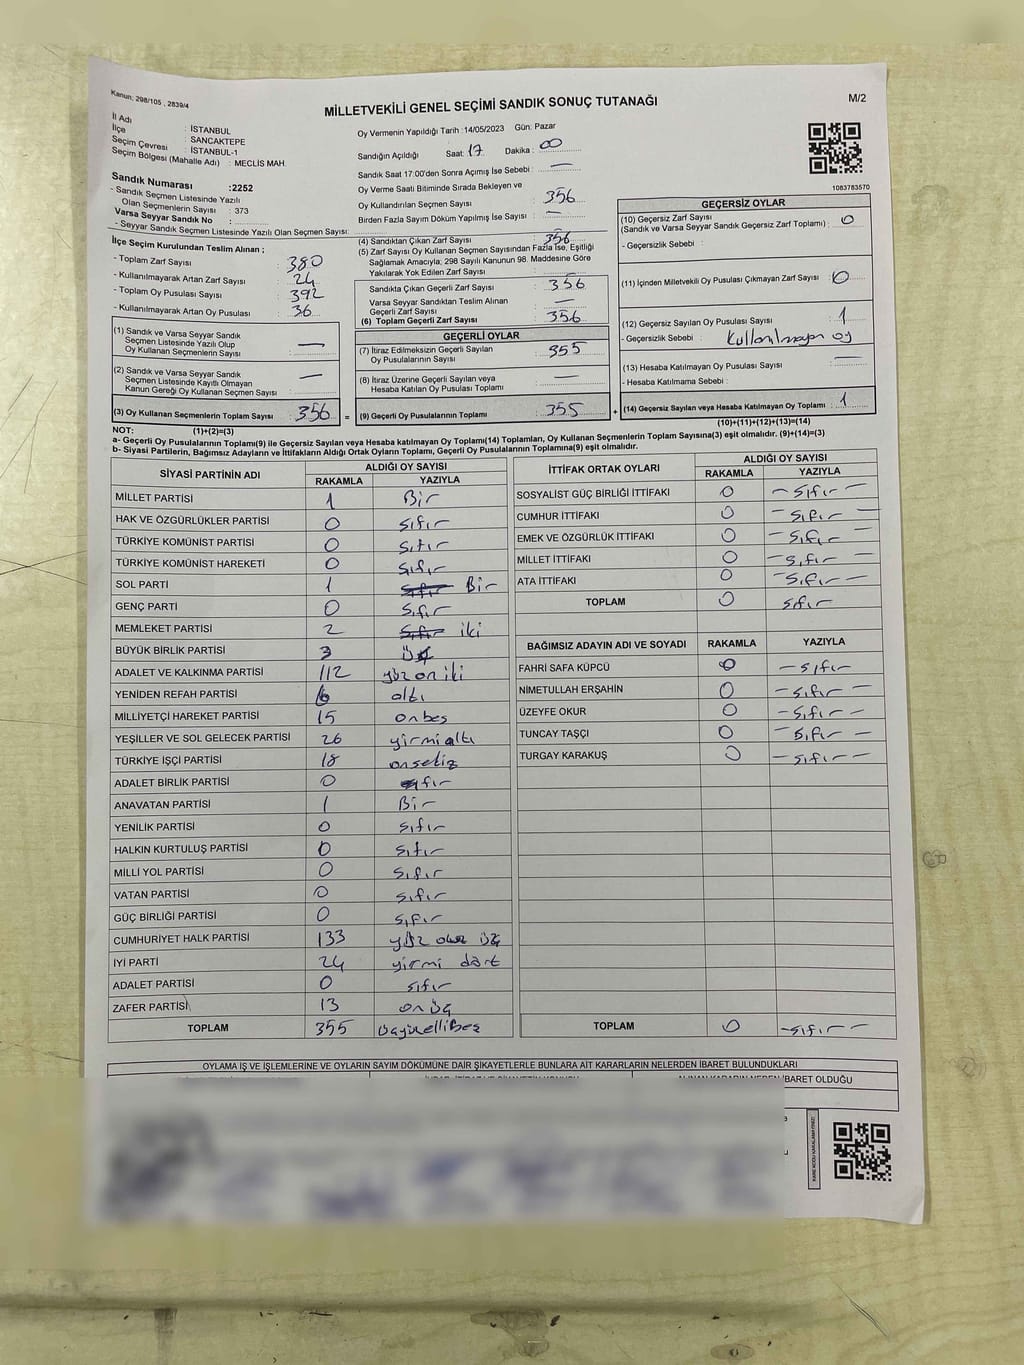 Kanun: 298/105 , 2839/4
MİLLETVEKİLİ GENEL SEÇİMİ SANDIK SONUÇ TUTANAĞI
M/2
İl Adı : İSTANBUL
İlçe : SANCAKTEPE
Seçim Çevresi : İSTANBUL-1
Seçim Bölgesi (Mahalle Adı) : MECLİS MAH.
Sandık Numarası :2252
- Sandık Seçmen Listesinde Yazılı
Olan Seçmenlerin Sayısı : 373
Varsa Seyyar Sandık No :
- Seyyar Sandık Seçmen Listesinde Yazılı Olan Seçmen Sayısı:
Oy Vermenin Yapıldığı Tarih :14/05/2023 Gün: Pazar
Sandığın Açıldığı Saat: 17 Dakika : 00
Sandık Saat 17:00'den Sonra Açımış İse Sebebi : —
Oy Verme Saati Bitiminde Sırada Bekleyen ve
Oy Kullandırılan Seçmen Sayısı : 356
Birden Fazla Sayım Döküm Yapılmış İse Sayısı : —
1083783570
İlçe Seçim Kurulundan Teslim Alınan ;
- Toplam Zarf Sayısı : 380
- Kullanılmayarak Artan Zarf Sayısı : 24
- Toplam Oy Pusulası Sayısı : 392
- Kullanılmayarak Artan Oy Pusulası : 36
(1) Sandık ve Varsa Seyyar Sandık
Seçmen Listesinde Yazılı Olup
Oy Kullanan Seçmenlerin Sayısı : —
(2) Sandık ve Varsa Seyyar Sandık
Seçmen Listesinde Kayıtlı Olmayan
Kanun Gereği Oy Kullanan Seçmen Sayısı : —
(3) Oy Kullanan Seçmenlerin Toplam Sayısı : 356 =
(4) Sandıktan Çıkan Zarf Sayısı : 356
(5) Zarf Sayısı Oy Kullanan Seçmen Sayısından Fazla İse, Eşitliği
Sağlamak Amacıyla; 298 Sayılı Kanunun 98. Maddesine Göre
Yakılarak Yok Edilen Zarf Sayısı :
Sandıkta Çıkan Geçerli Zarf Sayısı : 356
Varsa Seyyar Sandıktan Teslim Alınan
Geçerli Zarf Sayısı : —
(6) Toplam Geçerli Zarf Sayısı : 356
GEÇERLİ OYLAR
(7) İtiraz Edilmeksizin Geçerli Sayılan
Oy Pusulalarının Sayısı : 355
(8) İtiraz Üzerine Geçerli Sayılan veya
Hesaba Katılan Oy Pusulası Toplamı : —
(9) Geçerli Oy Pusulalarının Toplamı : 355 +
GEÇERSİZ OYLAR
(10) Geçersiz Zarf Sayısı
(Sandık ve Varsa Seyyar Sandık Geçersiz Zarf Toplamı) : 0
- Geçersizlik Sebebi :
(11) İçinden Milletvekili Oy Pusulası Çıkmayan Zarf Sayısı : 0
(12) Geçersiz Sayılan Oy Pusulası Sayısı : 1
- Geçersizlik Sebebi : Kullanılmayan oy
(13) Hesaba Katılmayan Oy Pusulası Sayısı : —
- Hesaba Katılmama Sebebi :
(14) Geçersiz Sayılan veya Hesaba Katılmayan Oy Toplamı : 1
NOT: (1)+(2)=(3)
(10)+(11)+(12)+(13)=(14)
a- Geçerli Oy Pusulalarının Toplamı(9) ile Geçersiz Sayılan veya Hesaba katılmayan Oy Toplamı(14) Toplamları, Oy Kullanan Seçmenlerin Toplam Sayısına(3) eşit olmalıdır. (9)+(14)=(3)
b- Siyasi Partilerin, Bağımsız Adayların ve İttifakların Aldığı Ortak Oyların Toplamı, Geçerli Oy Pusulalarının Toplamına(9) eşit olmalıdır.
SİYASİ PARTİNİN ADI ALDIĞI OY SAYISI
RAKAMLA YAZIYLA
MİLLET PARTİSİ 1 Bir
HAK VE ÖZGÜRLÜKLER PARTİSİ 0 sıfır
TÜRKİYE KOMÜNİST PARTİSİ 0 sıfır
TÜRKİYE KOMÜNİST HAREKETİ 0 sıfır
SOL PARTİ 1 sıfır Bir
GENÇ PARTİ 0 sıfır
MEMLEKET PARTİSİ 2 sıfır iki
BÜYÜK BİRLİK PARTİSİ 3 üç
ADALET VE KALKINMA PARTİSİ 112 yüz on iki
YENİDEN REFAH PARTİSİ 6 altı
MİLLİYETÇİ HAREKET PARTİSİ 15 onbeş
YEŞİLLER VE SOL GELECEK PARTİSİ 26 yirmialtı
TÜRKİYE İŞÇİ PARTİSİ 18 onsekiz
ADALET BİRLİK PARTİSİ 0 sıfır
ANAVATAN PARTİSİ 1 Bir
YENİLİK PARTİSİ 0 sıfır
HALKIN KURTULUŞ PARTİSİ 0 sıfır
MİLLİ YOL PARTİSİ 0 sıfır
VATAN PARTİSİ 0 sıfır
GÜÇ BİRLİĞİ PARTİSİ 0 sıfır
CUMHURİYET HALK PARTİSİ 133 yüz otuz üç
İYİ PARTİ 24 yirmi dört
ADALET PARTİSİ 0 sıfır
ZAFER PARTİSİ 13 onüç
TOPLAM 355 üçyüzellibeş
İTTİFAK ORTAK OYLARI ALDIĞI OY SAYISI
RAKAMLA YAZIYLA
SOSYALİST GÜÇ BİRLİĞİ İTTİFAKI 0 — sıfır —
CUMHUR İTTİFAKI 0 — sıfır —
EMEK VE ÖZGÜRLÜK İTTİFAKI 0 — sıfır —
MİLLET İTTİFAKI 0 — sıfır —
ATA İTTİFAKI 0 — sıfır —
TOPLAM 0 sıfır
BAĞIMSIZ ADAYIN ADI VE SOYADI RAKAMLA YAZIYLA
FAHRİ SAFA KÜPCÜ 0 — sıfır
NİMETULLAH ERŞAHİN 0 — sıfır —
ÜZEYFE OKUR 0 — sıfır —
TUNCAY TAŞÇI 0 — sıfır —
TURGAY KARAKUŞ 0 — sıfır —
TOPLAM 0 — sıfır —
OYLAMA İŞ VE İŞLEMLERİNE VE OYLARIN SAYIM DÖKÜMÜNE DAİR ŞİKAYETLERLE BUNLARA AİT KARARLARIN NELERDEN İBARET BULUNDUKLARI
ALINAN KARARIN NEDEN İBARET OLDUĞU